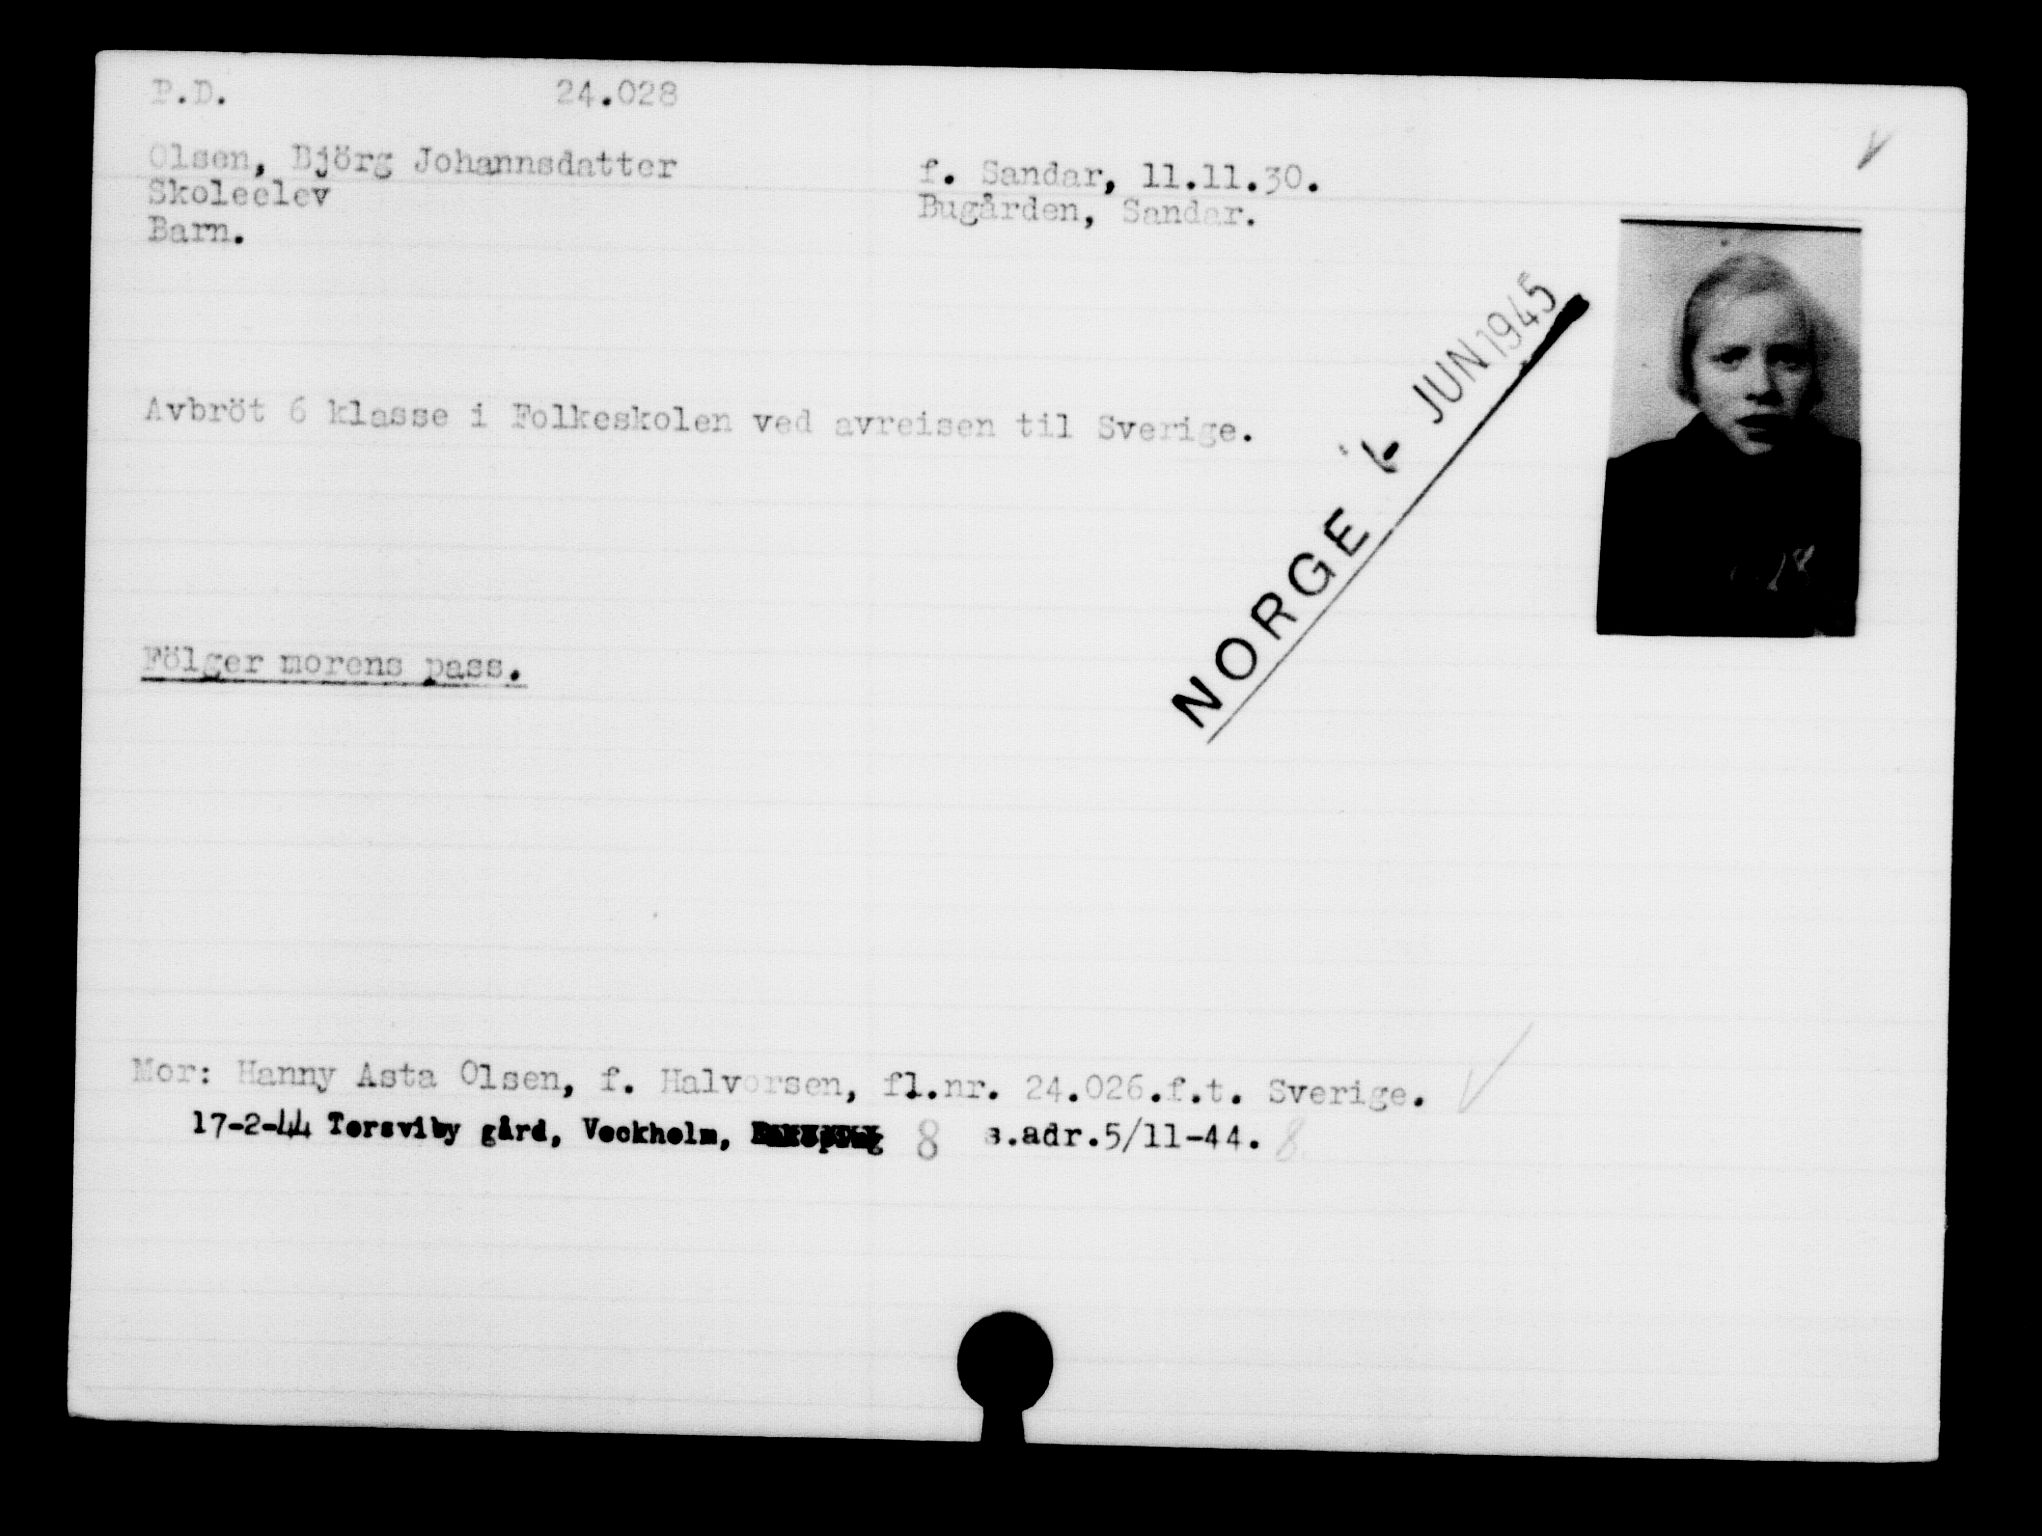 P.D. 24.028
Olsen, Björg Johannsdatter f. Sandar, 11.11.30.
Skoleelev Bugården, Sandar.
Barn.
Avbröt 6 klasse i Folkeskolen ved avreisen til Sverige.
NORGE JUN 1945
Fölger morens pass.
Mor: Hanny Asta Olsen, f. Halvorsen, fl.nr. 24.026.f.t. Sverige.
17-2-44 Torsviby gård, Veckholm, 8 s.adr.5/11-44. 8